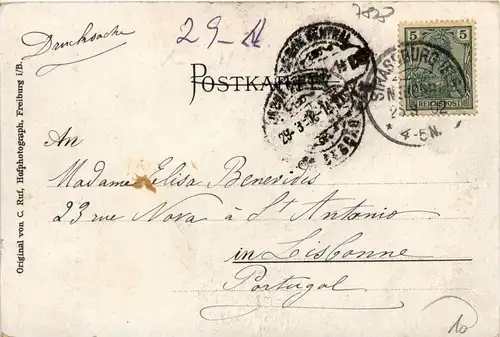 Drucksache
29-
7828
5 5
REICHSPOST
POSTKARTE
STRASSBURG
4-5N.
CENTRAL
29-3
An
Madame Elisa Benevides
23 rue Nova à St Antonio
in Lisbonne
Portugal
Original von C. Ruf, Hofphotograph, Freiburg i/B.
10